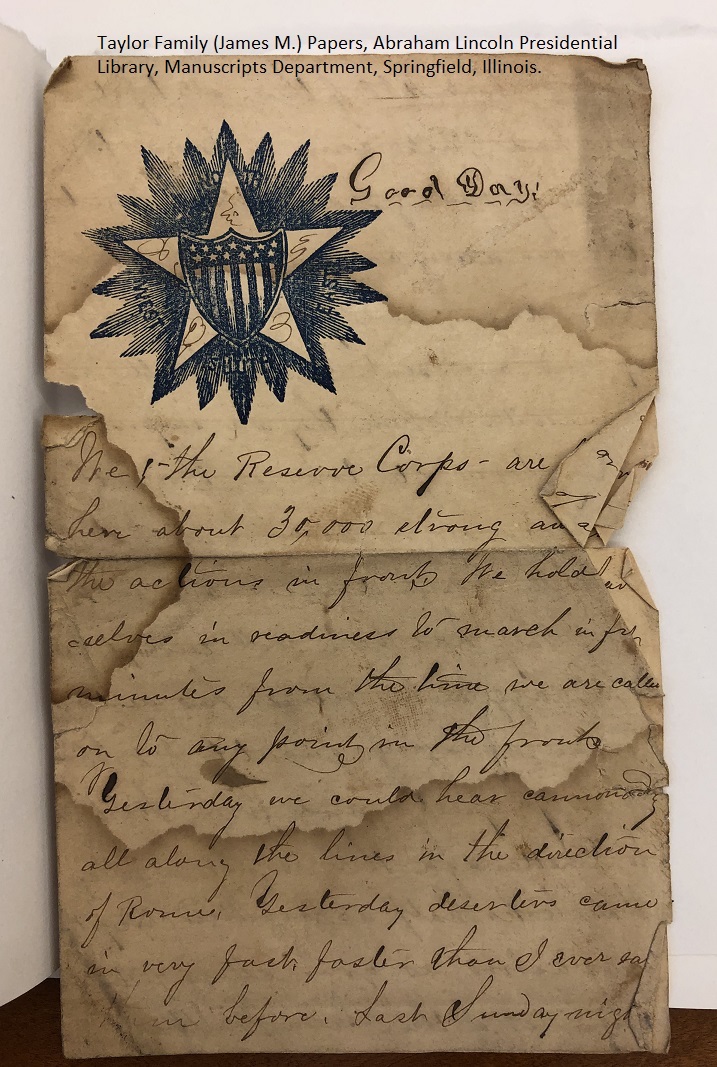 Taylor Family (James M.) Papers, Abraham Lincoln Presidential
Library, Manuscripts Department, Springfield, Illinois.
Good Day!
NORTH
WEST
EAST
SOUTH
We, the Reserve Corps - are
here about 30,000 strong
the actions in front, We hold
-selves in readiness to march in
minutes from the time we are
on to any point in the front
Yesterday we could hear
all along the lines in the direction
of Rome, Yesterday deserters came
in very fast, faster than I ever
before. Last Sunday